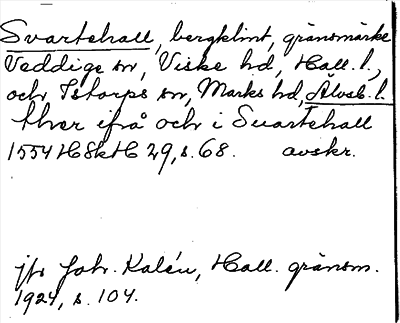 Svartehall, bergklint, gränsmärke
Veddige sn, Viske hd, Hall. l.,
och Istorps sn, Marks hd, Älvsb. l.
thær ifrå och i Suartehall
1554 HSkH 29, s. 68. avskr.
jfr Joh. Kalén, Hall. gränsm.
1924, s. 104.